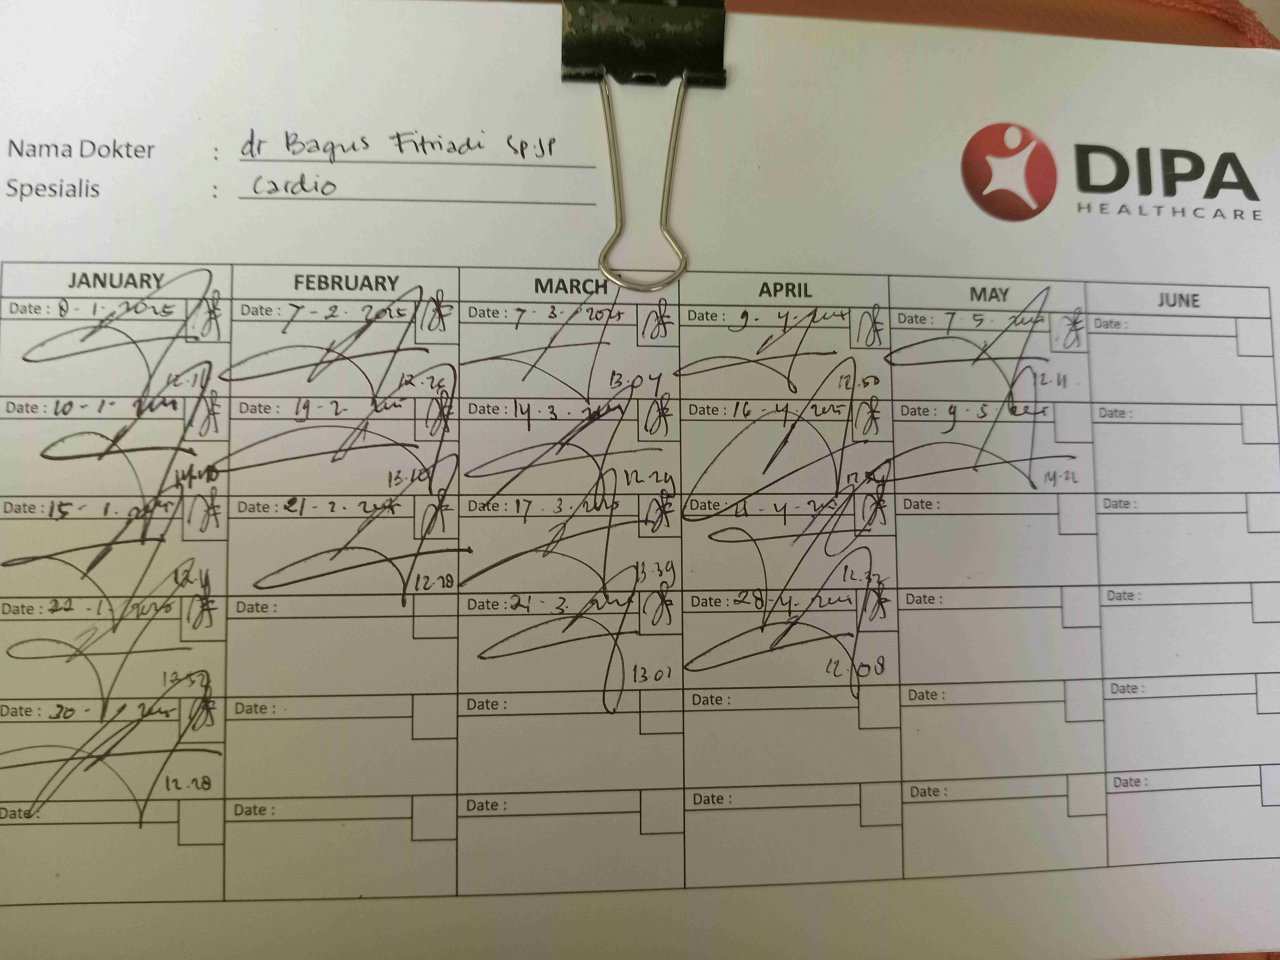 Nama Dokter : dr Bagus Fitriadi Sp.JP
Spesialis : Cardio
DIPA
HEALTHCARE
JANUARY FEBRUARY MARCH APRIL MAY JUNE
Date : 8-1-2025 Date : 7-2-2025 Date : 7-3-2025 Date : 9-4-2025 Date : 7-5-2025 Date :
12.26 13.04 12.50
Date : 10-1-2025 Date : 19-2-2025 Date : 14-3-2025 Date : 16-4-2025 Date : 9-5-2025 Date :
12.29 14.22
Date : 15-1-2025 Date : 21-2-2025 Date : 17-3-2025 Date : Date : Date :
12.28 13.39
Date : 22-1-2025 Date : Date : 21-3-2025 Date : 28-4-2025 Date : Date :
13.52 13.01 12.08
Date : 30- Date : Date : Date : Date : Date :
12.28
Date : Date : Date : Date : Date : Date :